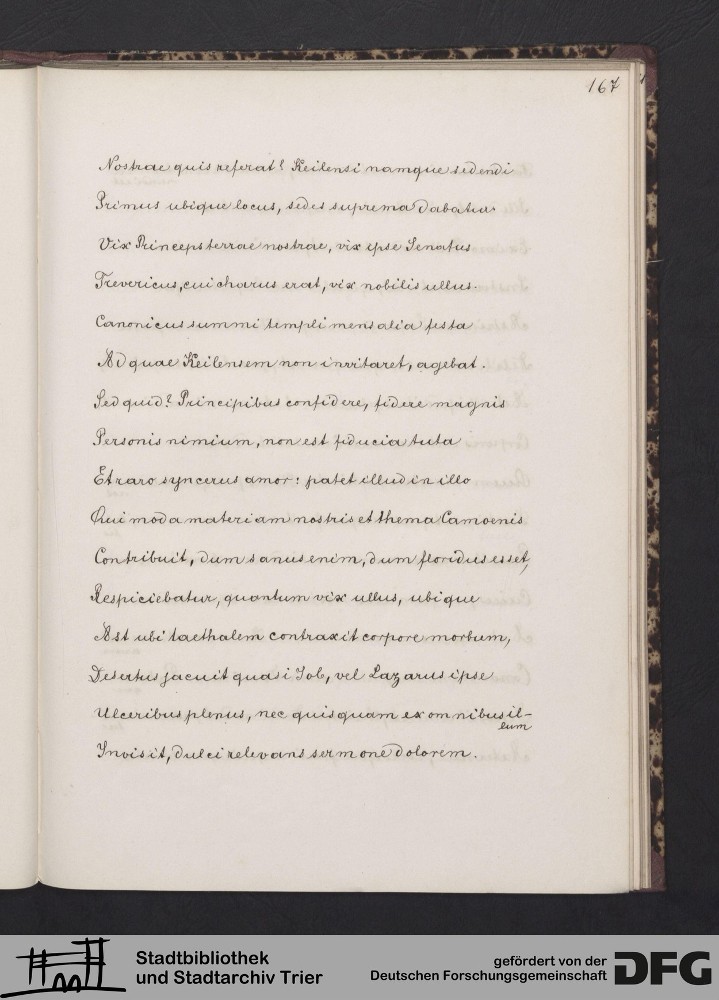 167
Nostrae quis referat? Keilensi namque sedendi
Primus ubique locus, sedes suprema dabatur
Vix Princeps terrae nostrae, vix ipse Senatus
Trevericus, cui charus erat, vix nobilis ullus.
Canonicus summi templi mensalia festa
Ad quae Keilensem non invitaret, agebat.
Sed quid? Principibus confidere, fidere magnis
Personis nimium, non est fiducia tuta
Et raro syncerus amor: patet illud in illo
Qui moda materiam nostris et thema Camoenis
Contribuit, dum sanus enim, dum floridus esset,
Respiciebatur, quantum vix ullus, ubique
Ast ubi laethalem contraxit corpore morbum,
Desertus jacuit quasi Job, vel Lazarus ipse
Ulceribus plenus, nec quisquam ex omnibus il-
lum
Invisit, dulci relevans sermone dolorem.
Stadtbibliothek
und Stadtarchiv Trier
gefördert von der
Deutschen Forschungsgemeinschaft
DFG